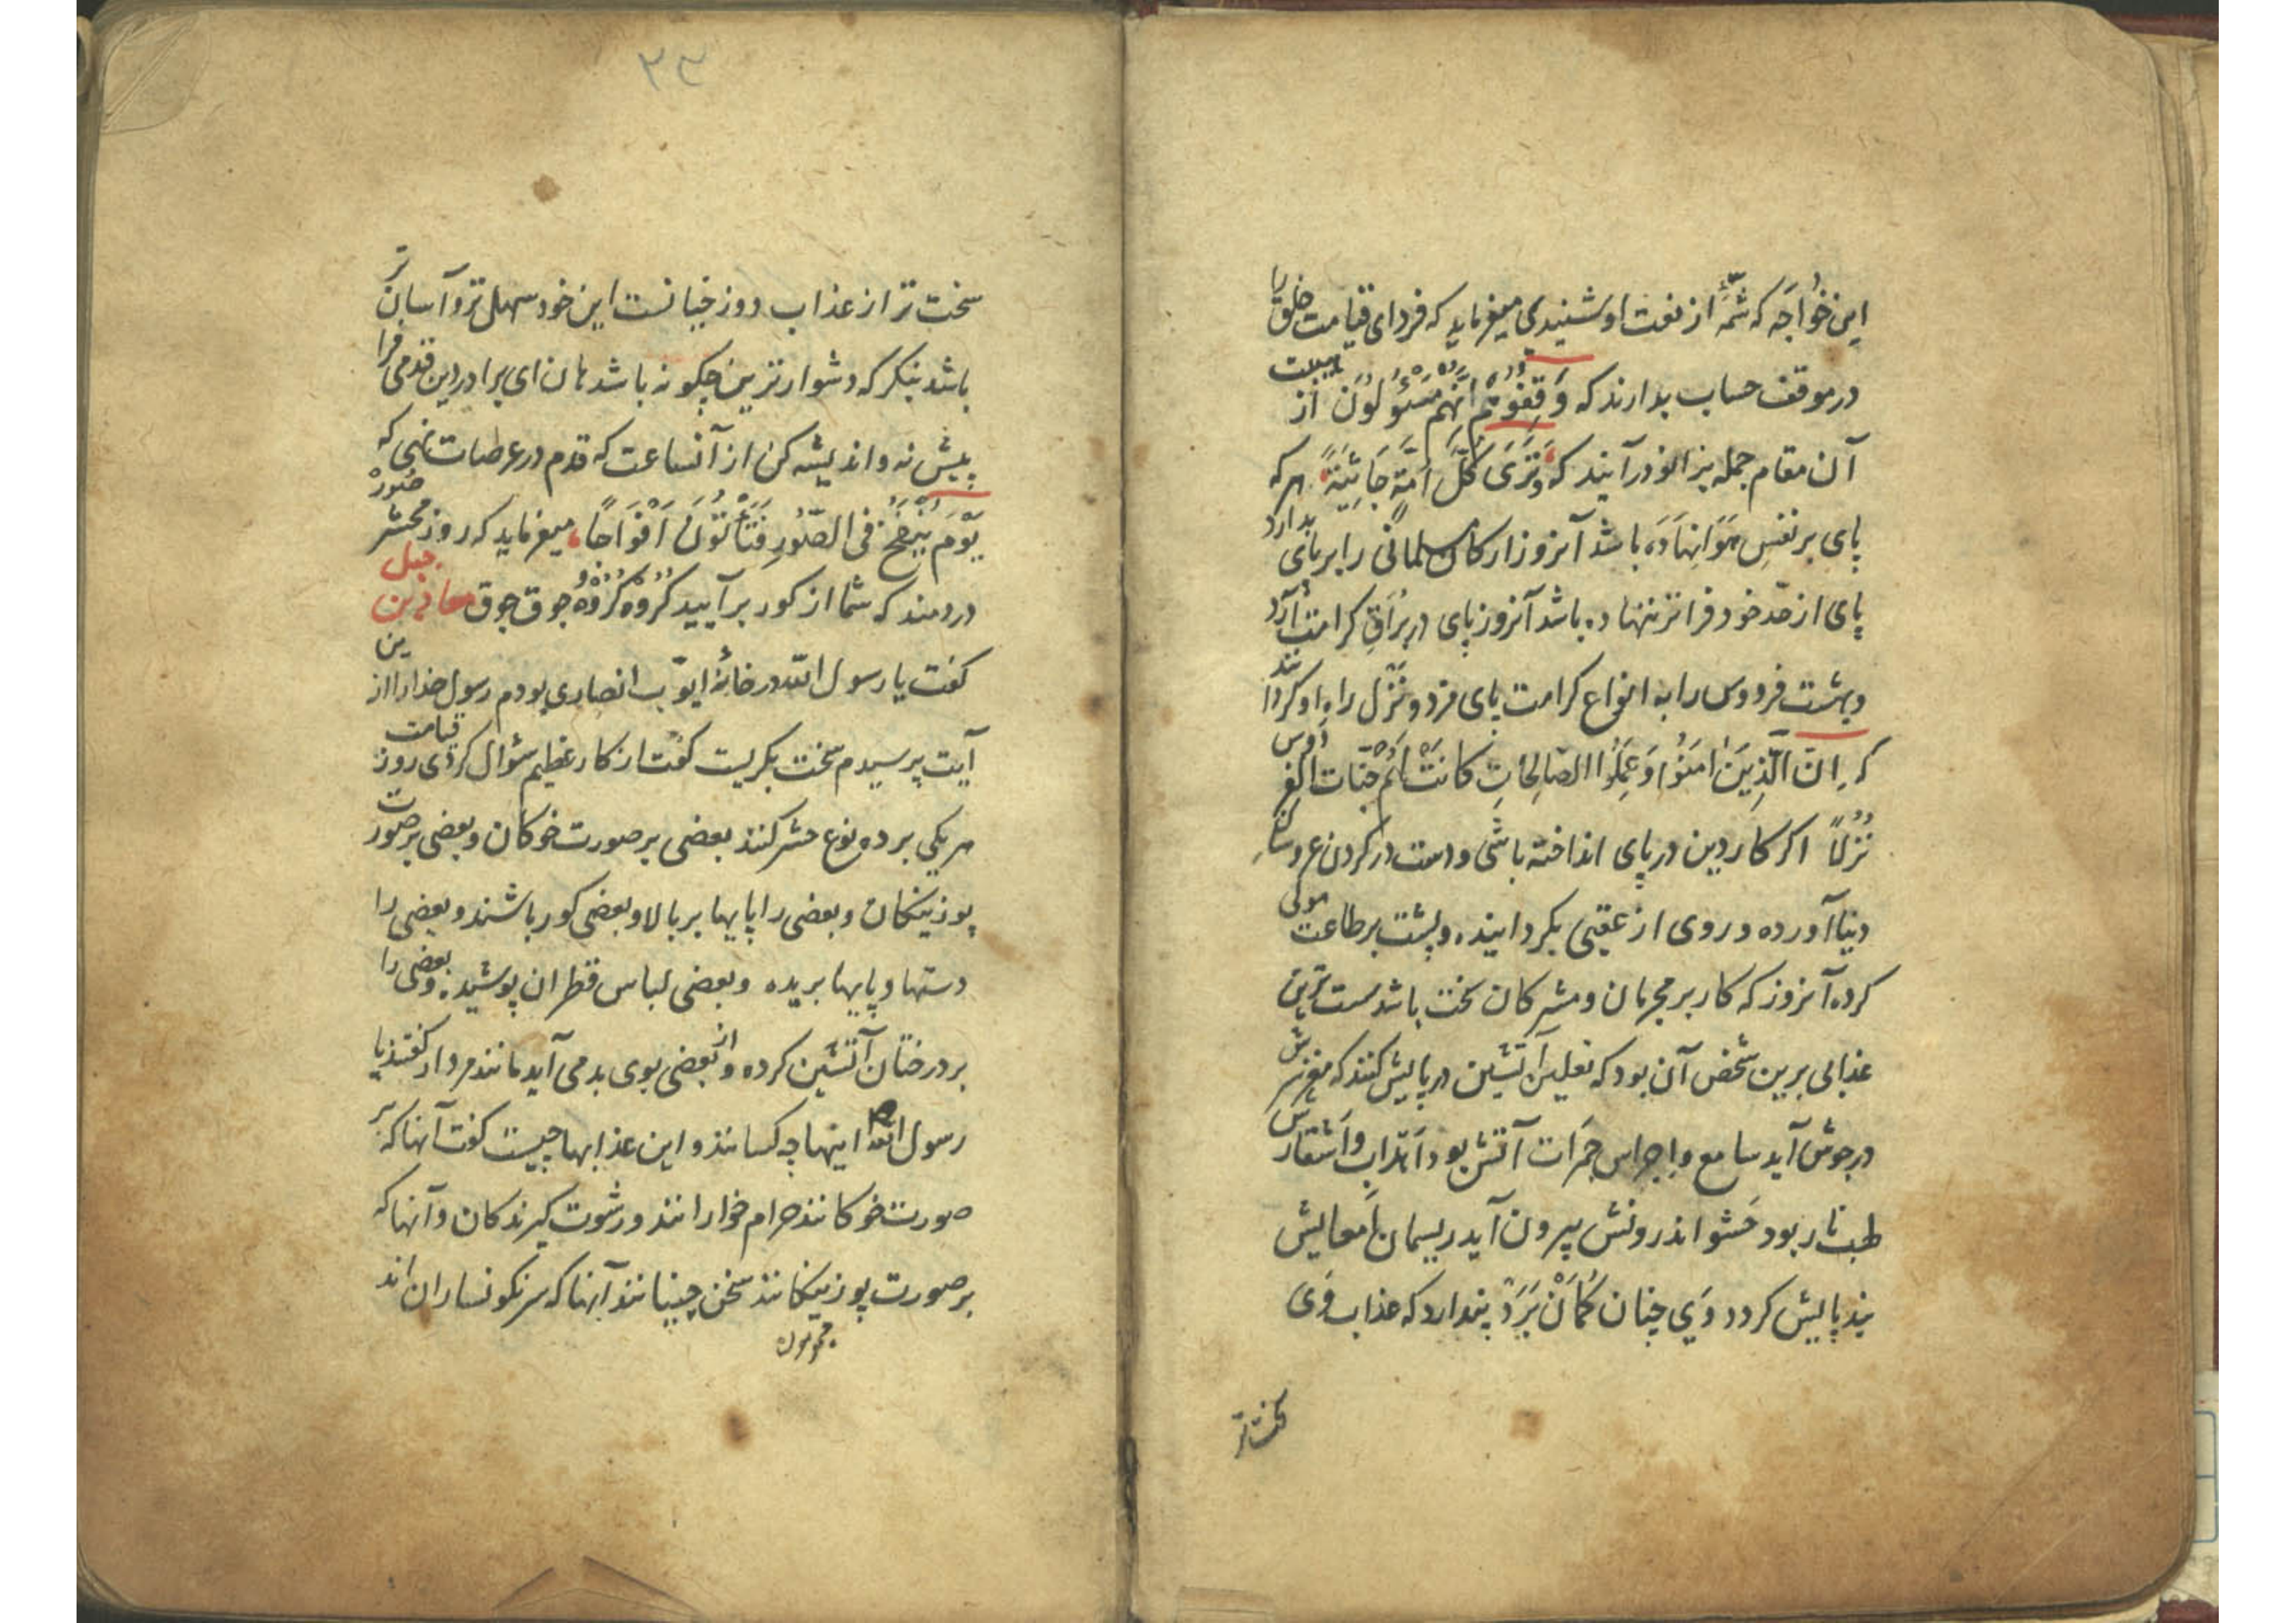 این خواجَه که شمّهٔ از نعت او شنیدی میفرماید که فردای قیامت خلق را
در موقف حساب بدارند که وَقِفُوهُم اِنَّهُم مَسْئُولُونَ از هیبت
آن مقام جمله بزانو درآیند که وَتَرَی کُلَّ اُمَّةٍ جَاثِیَةً هرکه
پای بر نفسِ هَوَا نِهاده باشد آنروز ارکان مسلمانی را برپای بدارد
پای از حدّ خود فراتر ننهاده باشد آنروز پای در بُراقِ کرامت آرد
و بهشت فردوس را به انواع کرامت پای مزد و نُزُل راه او کردانند
که اِنَّ الَّذِینَ اٰمَنُوا وَعَمِلُوا الصَّالِحَاتِ کَانَتْ لَهُمْ جَنَّات الفِردوس
نُزُلًا اکر کار دین در پای انداخته باشی و دست در کردن عروسان
دنیا آورده و روی از عقبی بکردانیده و پشت بر طاعت مولی
کرده آنروز که کار بر مجرمان و مشرکان سخت باشد سست ترین
عذابی برین شخص آن بود که نعلین آتشین در پایش کنند که مغز سرش
در جوش آید سامع و اجراس جَمَرات آتش بود اَهداب و اَشفارش
لهب نار بود حَشو اندرونش بیرون آید ریسمان اَمعایش
بند پایش کردد وَی چنان کُمَانْ بَرَدْ پندارد که عذاب وَی
سخت تر
۳۳
سخت تر از عذاب دوزخیانست این خود سهل تر و آسان تر
باشد بنکر که دشوارترین چکونه باشد هان ای برادر دین قدمی فرا
پیش نه و اندیشه کن از آنساعت که قدم در عرصات نهی که
یَوْمَ یُنْفَخُ فی الصُّورِ فَتَأْتُونَ اَفْوَاجًا میفرماید که روز محشر صُور
در دمند که شما از کور برآیید کُروه کُروه جوق جوق معاذ بن جبل
کفت یا رسول الله در خانهٔ ایّوب انصاری بودم رسول خدا را ازین
آیت پرسیدم سخت بکریست کفت از کار عظیم سؤال کردی روز قیامت
هر یکی بر ده نوع حشر کنند بعضی بر صورت خوکان و بعضی بر صورت
پوزینکان و بعضی را پایها بر بالا و بعضی کور باشند و بعضی را
دستها و پایها بریده و بعضی لباس قطران پوشیده و بعضی را
بر درختان آتشین کرده و از بعضی بوی بد می آید مانند مردار کفتند یا
رسول الله اینها چه کسانند و این عذابها چیست کفت آنها که بر
صورت خوکانند حرام خوارانند و رشوت کیرندکان و آنها که
بر صورت پوزینکانند سخن چینانند آنها که سرنکونساران اند